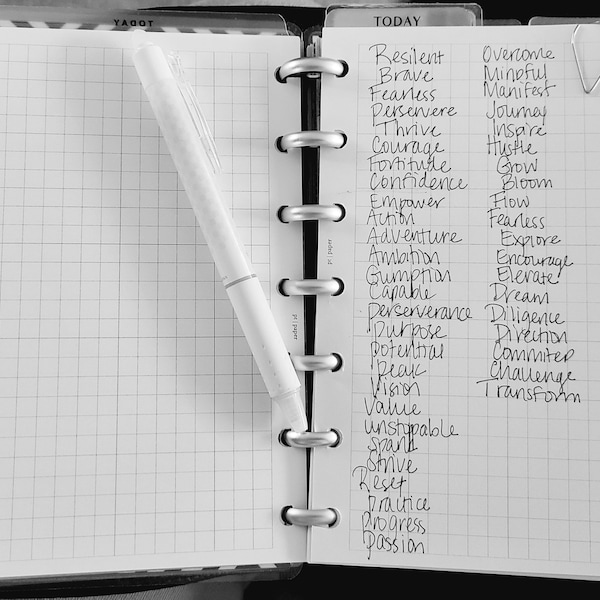 TODAY
TODAY
Resilent
Brave
Fearless
Perservere
Thrive
Courage
Fortitude
Confidence
Empower
Action
Adventure
Ambition
Gumption
Capable
perserverance
Purpose
potential
Peak
Vision
Value
unstoppable
Spark
Strive
Reset
practice
Progress
Passion
Overcome
Mindful
Manifest
Journey
Inspire
Hustle
Grow
Bloom
Flow
Fearless
Explore
Encourage
Elevate
Dream
Diligence
Direction
Committed
Challenge
Transform